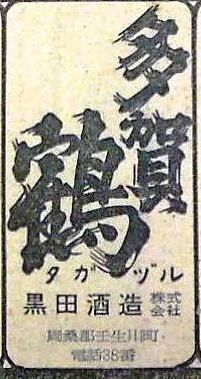 多賀鶴
タガヅル
黒田酒造株式会社
周桑郡壬生川町
電話38番